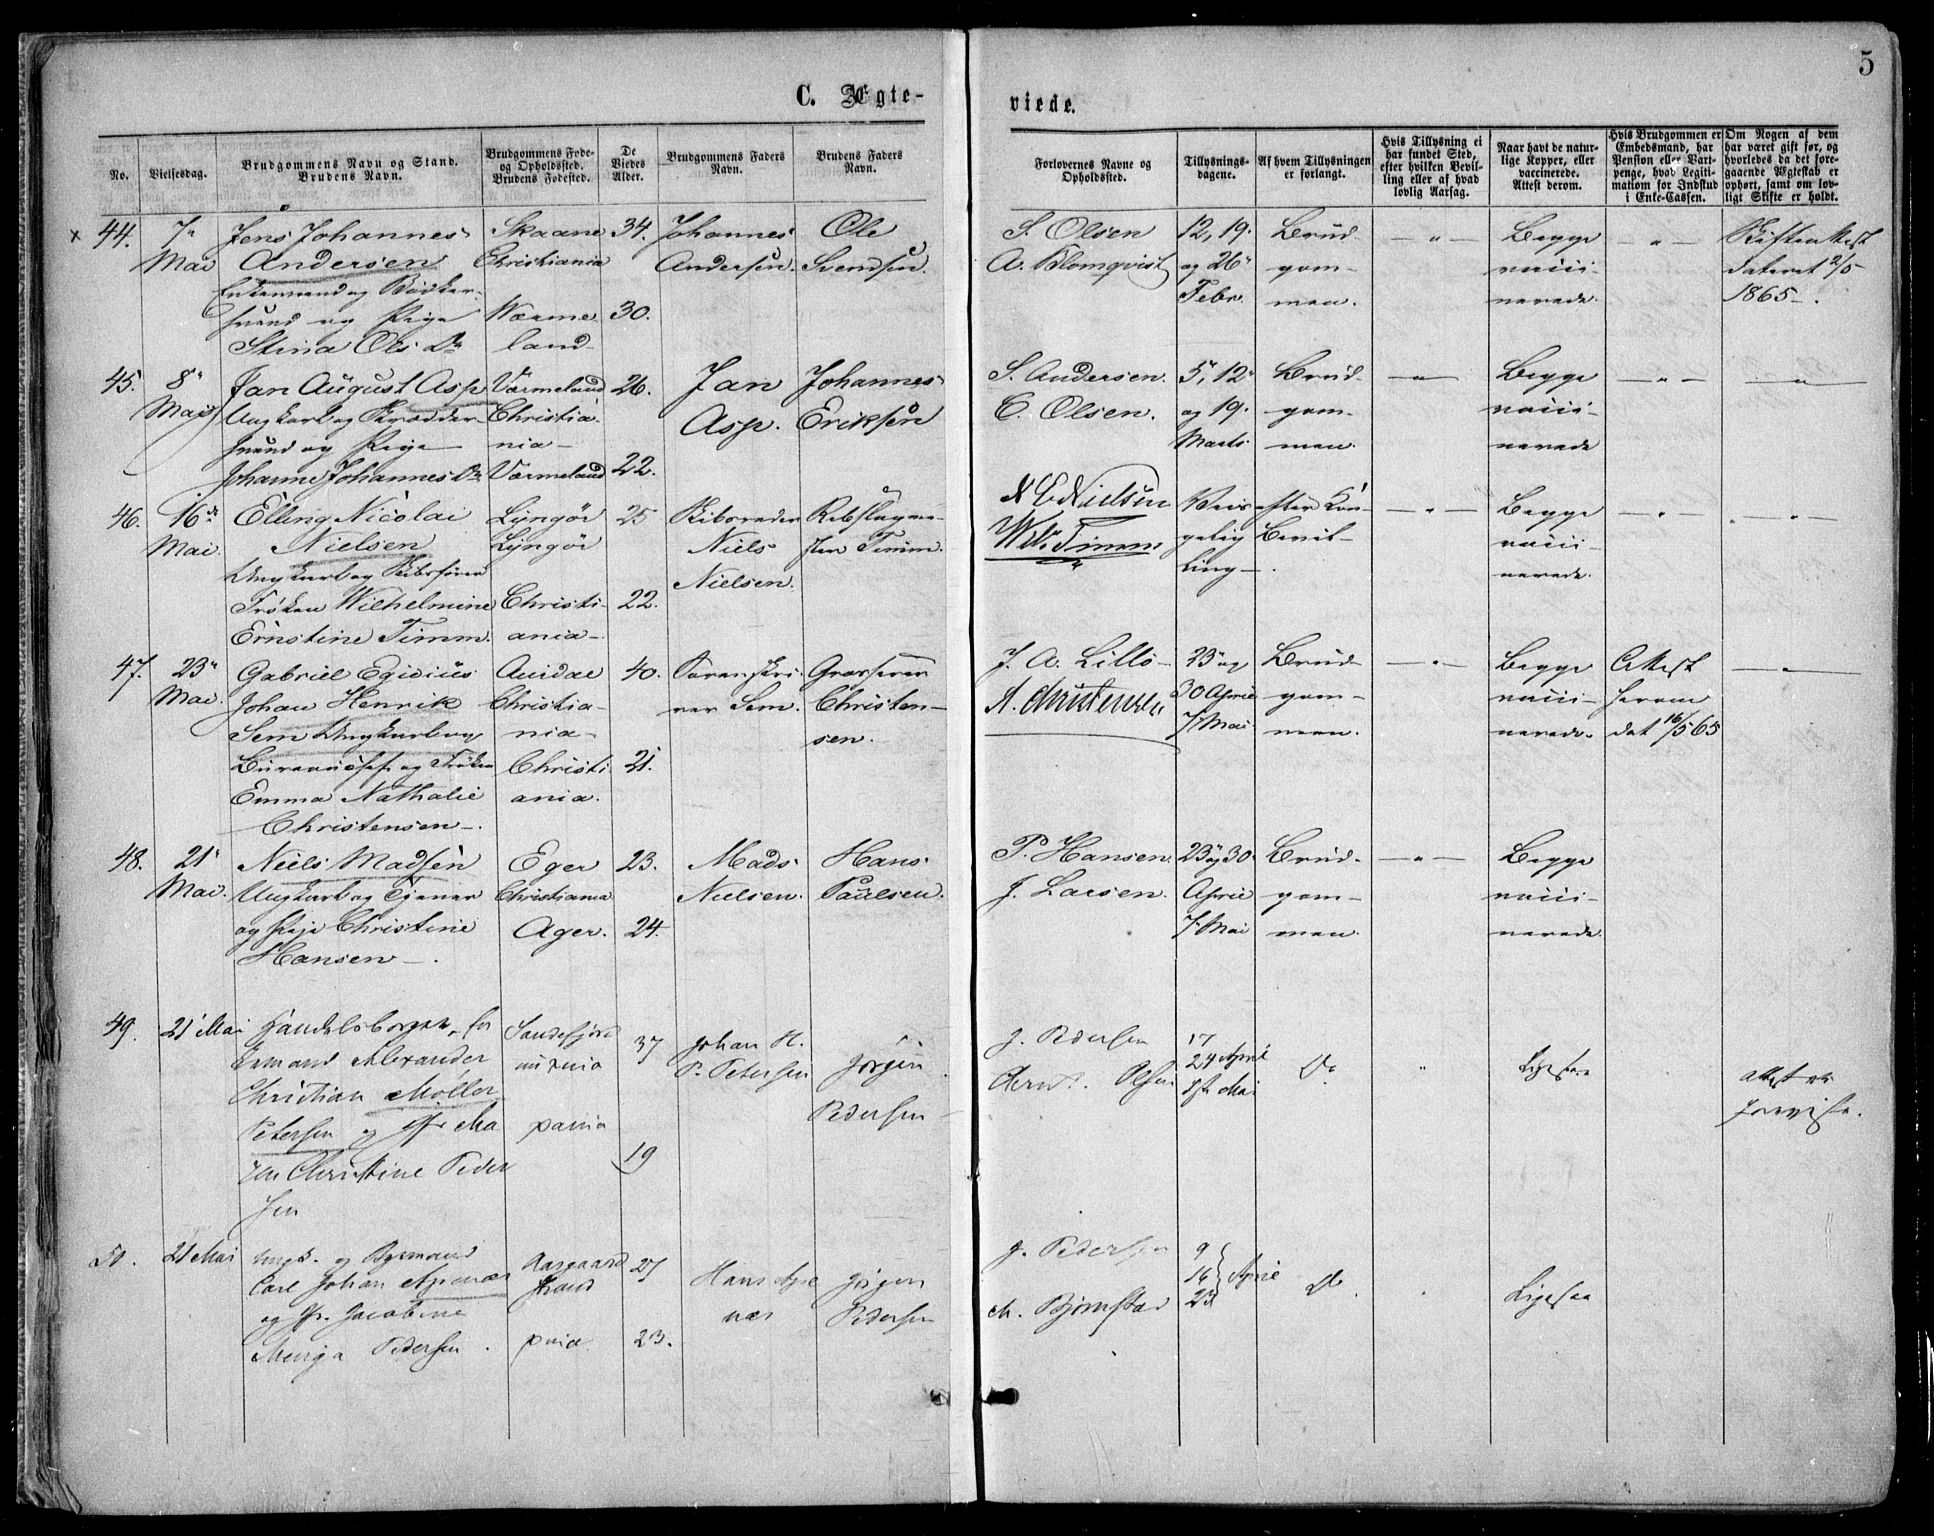 5
C. Ægte-
viede.
No.
Vielsesdag.
Brudgommens Navn og Stand.
Brudens Navn.
Brudgommens Føde-
og Opholdssted.
Brudens Fødested.
De
Viedes
Alder.
Brudgommens Faders
Navn.
Brudens Faders
Navn.
Forlovernes Navne og
Opholdssted.
Tillysnings-
dagene.
Af hvem Tillysningen
er forlangt.
Hvis Tillysning ei
har fundet Sted,
efter hvilken Bevil-
ling eller af hvad
lovlig Aarsag.
Naar havt de natur-
lige Kopper, eller
vaccinerede.
Attest derom.
Hvis Brudgommen er
Embedsmand, har
Pension eller Vart-
penge, hvad Legiti-
mation for Indskud
i Enke-Cassen.
Om Nogen af dem
har været gift før, og
hvorledes da det fore-
gaaende Ægteskab er
ophørt, samt om lov-
ligt Skifte er holdt.
x 44. 7de Mai
Jens Johannes
Andersen
Enkemand og Bødker-
svend og Pige
Stina Ols Dr
Skaane
Christiania
Wærme
land
34.
30.
Johannes
Andersen.
Ole
Svendsen.
S. Olsen
A. Blomqvist
12, 19.
og 26
Febr.
Brud
gom-
men.
— " —
Begge
vacci-
nerede.
— " —
Skifteattest
dateret 2/5
1865.
45. 8de Mai
Jan August Asp
Ungkarl og Skrædder
svend og Pige
Johanne Johannes Dr
Värmeland
Christia-
nia
Värmeland
26.
22.
Jan
Asp.
Johannes
Eriksen
S. Andersen.
C. Olsen.
5, 12
og 19.
Marts
Brud
gom-
men.
— " —
Begge
vacci-
nerede
— " —
— " —
46. 16de Mai.
Elling Nicolai
Nielsen
Ungkarl og Skibsfører
Frøken Wilhelmine
Ernstine Timm.
Lyngör
Lyngör
Christi-
ania
25
22.
Skibsreder
Niels
Nielsen.
Rebslagerme-
ster Timm.
N E Nielsen
Wilh Timm
Veis efter Kon-
gelig Bevil-
ling.
— " —
Begge
vacci-
nerede.
— " —
— " —
47. 23de Mai.
Gabriel Egidius
Johan Henrik
Sem Ungkarl og
Bureauchef og Frøken
Emma Nathalie
Christensen.
Christia-
nia
Christi
ania.
40.
21.
Sorenskri-
ver Sem.
Grosserer
Christen-
sen.
J. A. Lillo
A. Christensen
23 og
30 April
7 Mai
Brud
gom-
men.
— " —
Begge
vacci-
nerede.
Attest
herom
dat 16/5 65
— " —
48. 21de Mai.
Niels Madsen
Ungkarl og Tjener
og Pige Christine
Hansen.
Eger
Christiania
Ager.
23.
24.
Mads
Nielsen.
Hans
Paulsen.
P. Hansen.
J. Larsen.
23 og 30
April
7 Mai
Brud-
gom-
men.
— " —
Begge
vacci-
nerede.
49. 21 Mai
Handelsborger, for
Enmand Alexander
Christian Möller
Petersen og Pr Ma
ren Christine Peder
sen
Sandefjord
37
19
Johan H.
P. Petersen
Jørgen
Pedersen
J. Pedersen
Olsen
17
24 April
1ste Mai
Do
"
Ligesaa
Attest er
forevist.
50. 21 Mai
Ungk. og Bymand
Carl Johan Apenæs
og Pr. Jacobine
Pedersen.
Aasgaard
strand
27
23.
Hans Ape
næs
Jørgen
Pedersen
J. Pedersen
M. Bjørnstad
9
16
23
April
Do
Ligesaa